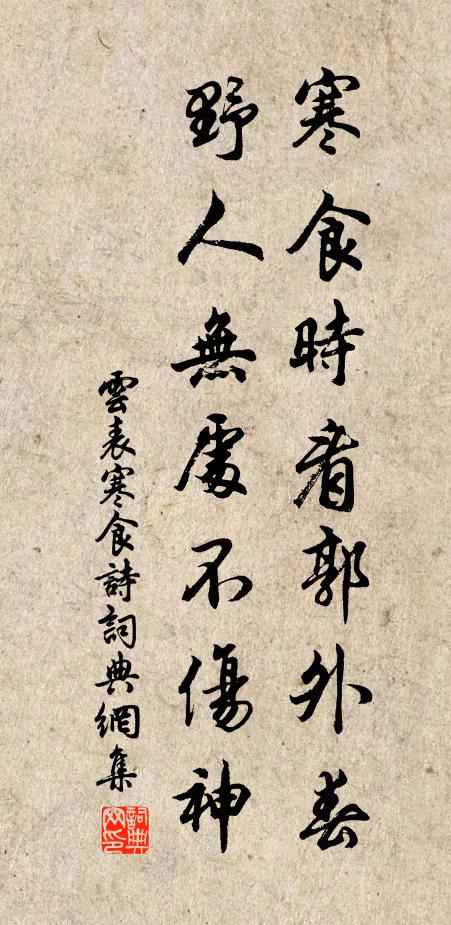 寒食時看郭外春
野人無處不傷神
雲表寒食詩詞典網集
詞典網印